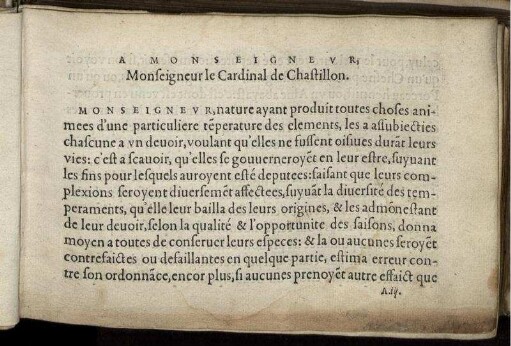 A MONSEIGNEVR,
Monseigneur le Cardinal de Chastillon.
MONSEIGNEVR, nature ayant produit toutes choses ani-
mees d'une particuliere tẽperature des elements, les a assubiecties
chascune a vn deuoir, voulant qu'elles ne fussent oisiues durãt leurs
vies: c'est a scauoir, qu'elles se gouuerneroyẽt en leur estre, suyuant
les fins pour lesquels auroyent esté deputees: faisant que leurs com-
plexions seroyent diuersemẽt affectees, suyuãt la diuersité des tem-
peraments, qu'elle leur bailla des leurs origines, & les admõnestant
de leur deuoir, selon la qualité & l'opportunite des saisons, donna
moyen a toutes de conseruer leurs especes: & la ou aucunes seroyẽt
contrefaictes ou defaillantes en quelque partie, estima erreur con-
tre son ordonnãce, encor plus, si aucunes prenoyẽt autre effaict que
A.ij.